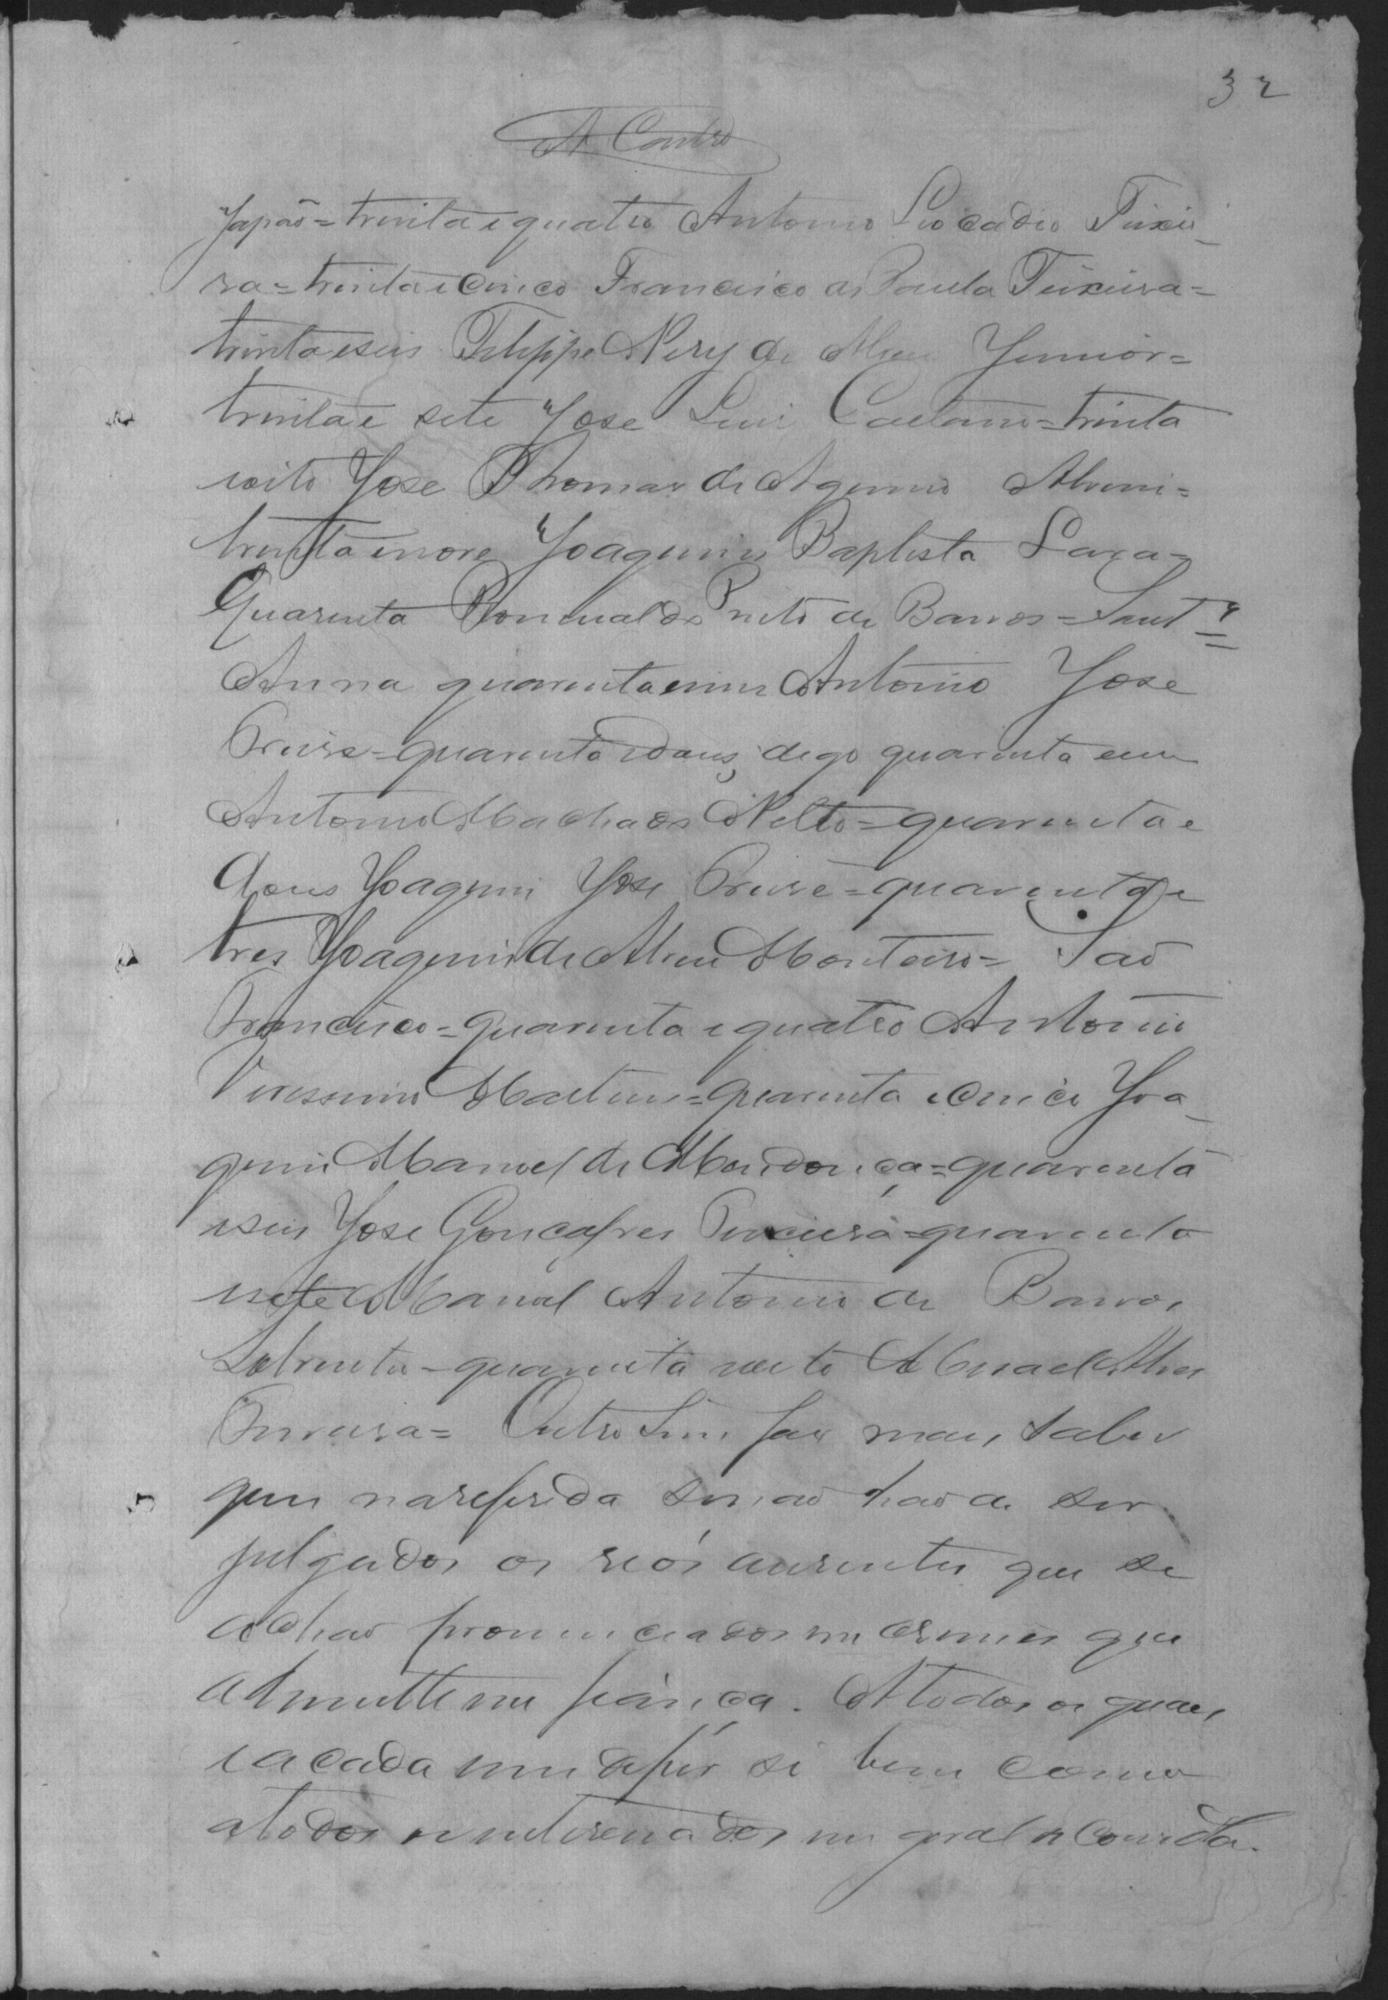 32
A Castro
Japão = trinta e quatro Antonio Leocadio Teixei-
ra = trinta e cinco Francisco de Paula Teixeira =
trinta e seis Felippe Nery de Abreu Junior =
trinta e sete Jose Luiz Caetano = trinta
e oito Jose Thomas de Aquino
trinta e nove Joaquim Baptista Lara =
Quarenta Romualdo Preto de Barros = Sant
Anna quarenta e um Antonio Jose
quarenta e dous, digo quarenta e um
Antonio Machado Netto = quarenta e
dous Joaquim Jose = quarenta e
tres Joaquim de Abreu Monteiro = São
Francisco = quarenta e quatro Antonio
Verissimo Martins = quarenta e cinco Joa-
quim Manoel de Mendonça = quarenta
e seis Jose Gonçalves Teixeira = quarenta
e sete Manoel Antonio de Barros
quarenta e oito
Outro sim faz mais saber
que na referida sessão hão de ser
julgados os reos ausentes que se
achão pronunciados em crimes que
admittem fiança. A todos os quaes,
e a cada um de per si bem como
a todos os interessados em geral se convida